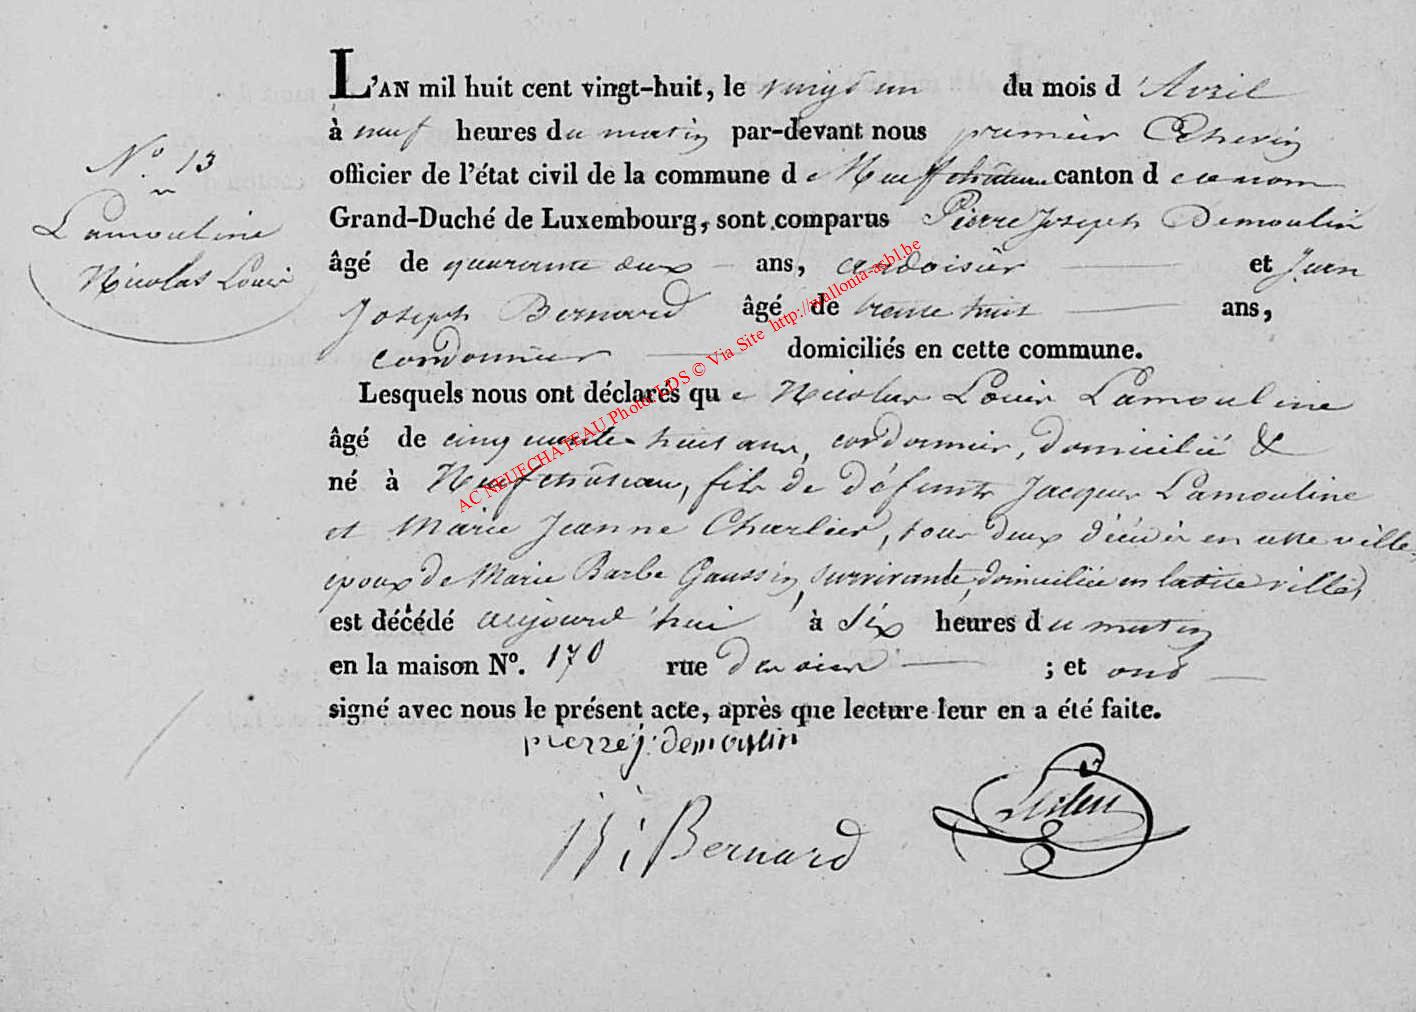 L'AN mil huit cent vingt-huit, le vingt un du mois d'Avril
à neuf heures du matin par-devant nous premier Echevin
officier de l'état civil de la commune de Neufchâteau canton de ce nom
Grand-Duché de Luxembourg, sont comparus Pierre Joseph Demoulin
âgé de quarante deux ans, ardoisier et Jean
Joseph Bernard âgé de trente huit ans,
cordonnier domiciliés en cette commune.
Lesquels nous ont déclarés que Nicolas Louis Lamouline
âgé de cinquante-huit ans, cordonnier, domicilié &
né à Neufchâteau, fils de défunts Jacques Lamouline
et Marie Jeanne Charlier, tous deux décédés en cette ville,
époux de Marie Barbe Gaussin, survivante, domiciliée en la dite ville,
est décédé aujourd'hui à Six heures du matin
en la maison No. 170 rue ; et ont
signé avec nous le présent acte, après que lecture leur en a été faite.
No. 13
Lamouline
Nicolas Louis
pierre j. demoulin
Bernard
AC NEUFCHATEAU Photo LDS © Via Site http://wallonia-asbl.be